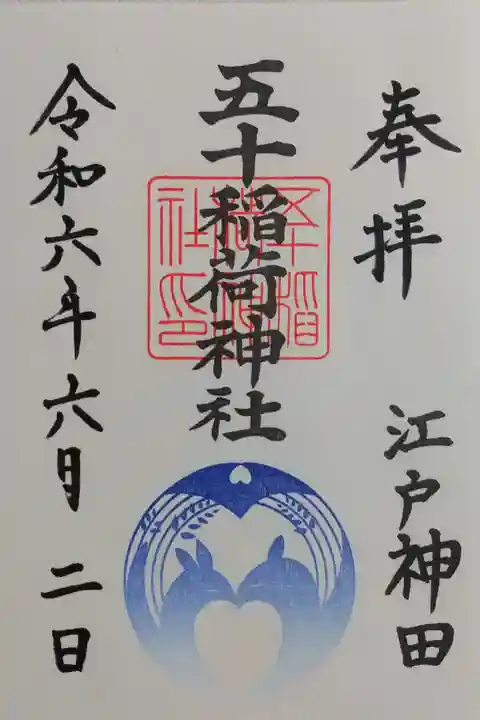 奉拝 江戸神田
五十稲荷神社
令和六年六月二日